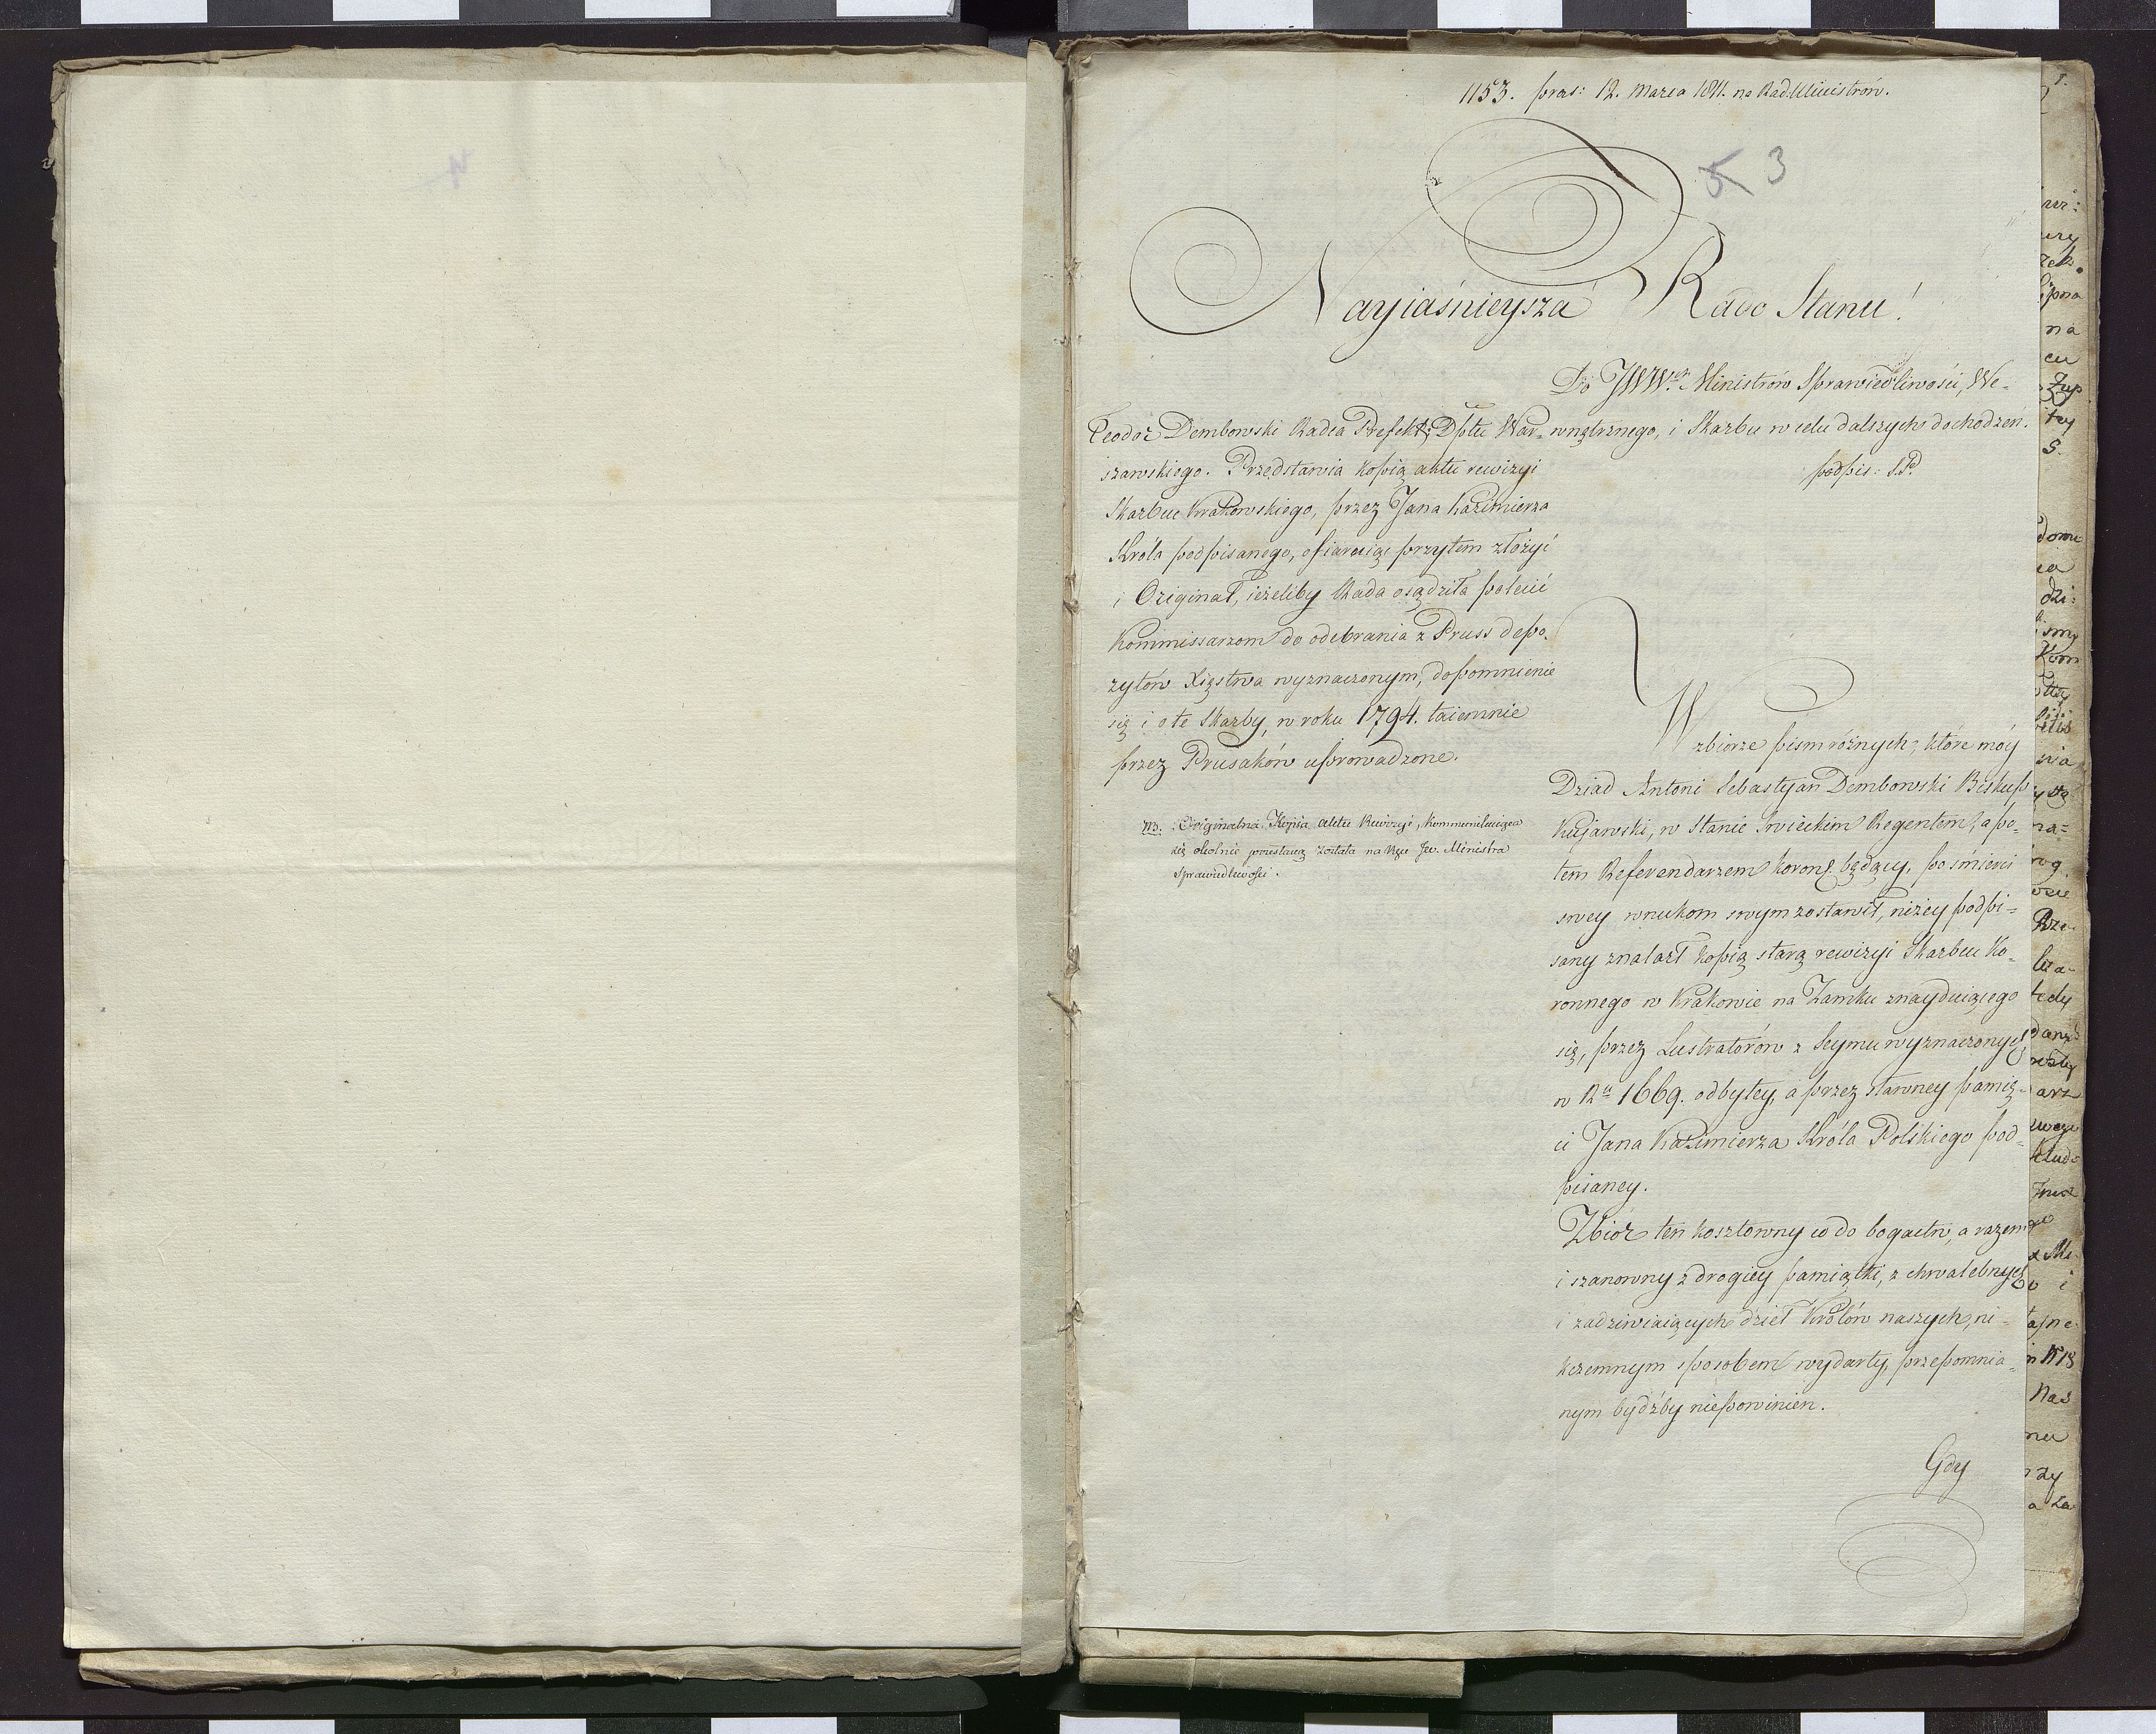 1153. præs: 12. Marca 1811. na Rad. Ministrów.
5 3
Nayiaśnieysza Rado Stanu!
Teodor Dembowski Radca Prefekt: Dptu War=
szawskiego. Przedstawia kopią aktu rewizyi
Skarbcu Krakowskiego, przez Jana Kazimierza
Króla podpisanego, ofiaruiąc przytem złożyć
i Originał, ieżeliby Rada osądziła polecić
Kommissarzom do odebrania z Pruss depo=
zytów Xięstwa wyznaczonym, dopomnienie
się i o te Skarby, w roku 1794. taiemnie
przez Prusaków uprowadzone.
NB. Originalna Kopia Aktu Rewizyi, kommunikuiąca
się okolnie przesłaną została na Ręce JW. Ministra
Sprawiedliwości.
Do JWWch Ministrów Sprawiedliwości, We=
wnętrznego, i Skarbu w celu dalszych dochodzeń.
podpis: S.P.
W zbiorze pism różnych, które móy
Dziad Antoni Sebastyan Dembowski Biskup
Kujawski, w Stanie Swieckim Regentem, a po=
tem Referendarzem koron: będący, po śmierci
swey wnukom swym zostawił, niżey podpi=
sany znalazł kopią starą rewizyi Skarbcu Ko=
ronnego w Krakowie na Zamku znayduiącego
się, przez Lustratorów z Seymu wyznaczonych
w Ru 1669. odbytey, a przez sławney pamię=
ci Jana Kazimierza Króla Polskiego pod=
pisaney.
Zbiór ten kosztowny co do bogactw, a razem
i szanowny z drogiey pamiątki, z chwalebnych
i zadziwiaiących dzieł Królów naszych, ni=
kczemnym sposobem wydarty, przepomnia=
nym bydźby niepowinien.
Gdy